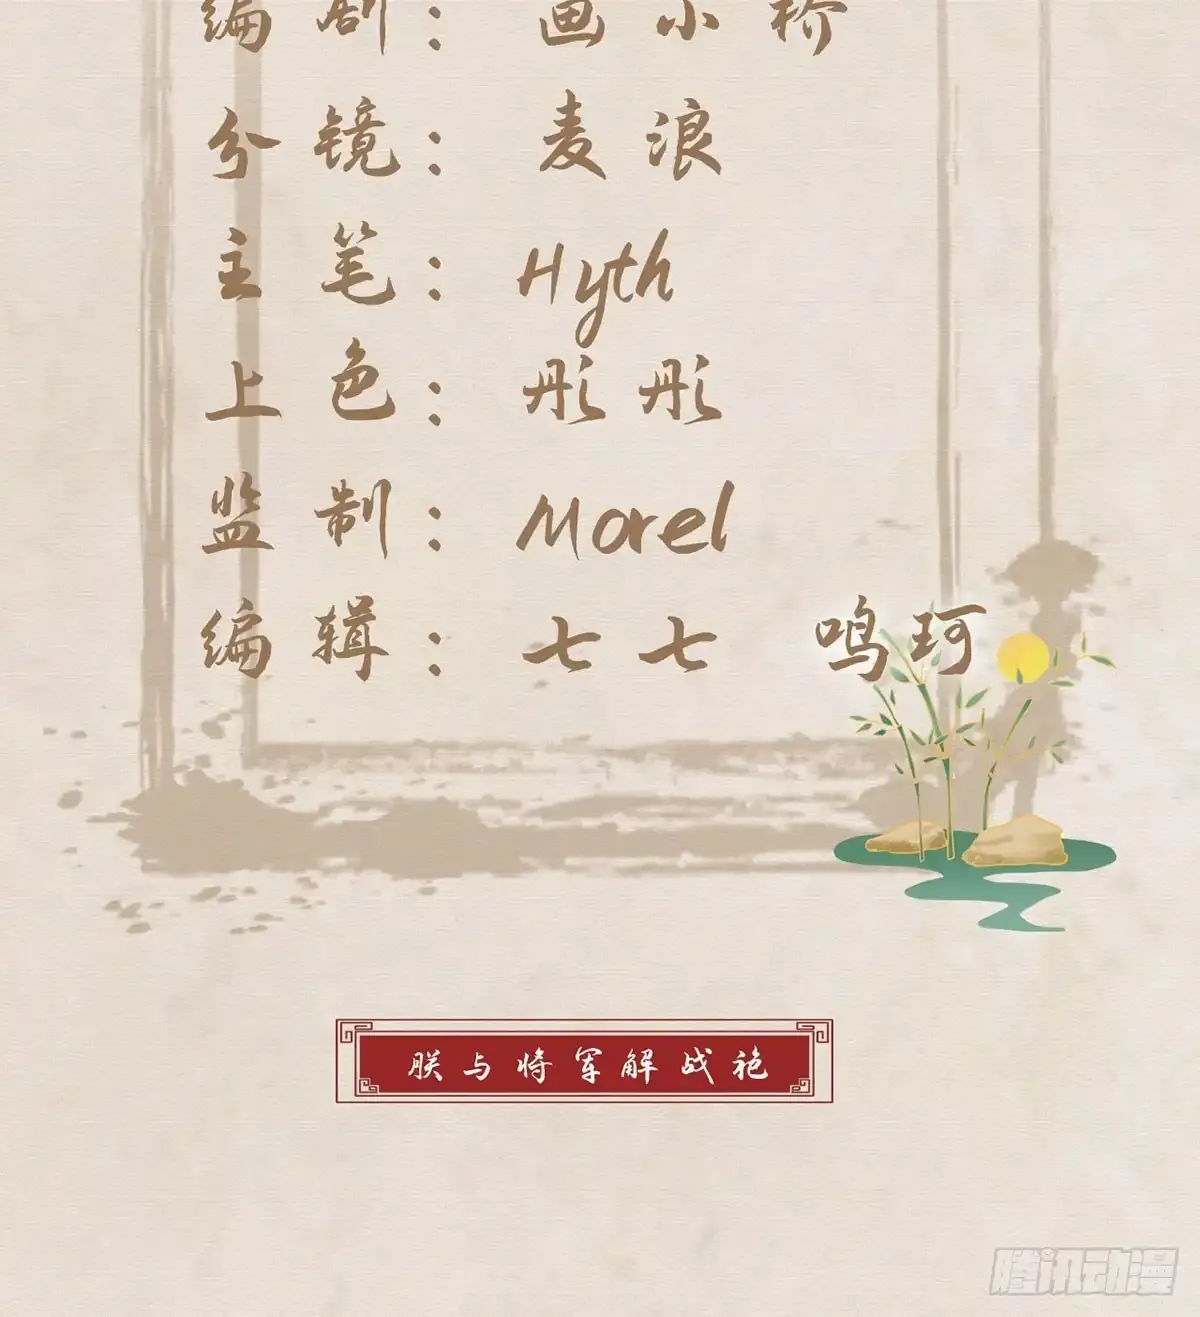 编剧：画小桥
分镜：麦浪
主笔：Hyth
上色：彤彤
监制：Morel
编辑：七七 鸣珂
朕与将军解战袍
腾讯动漫